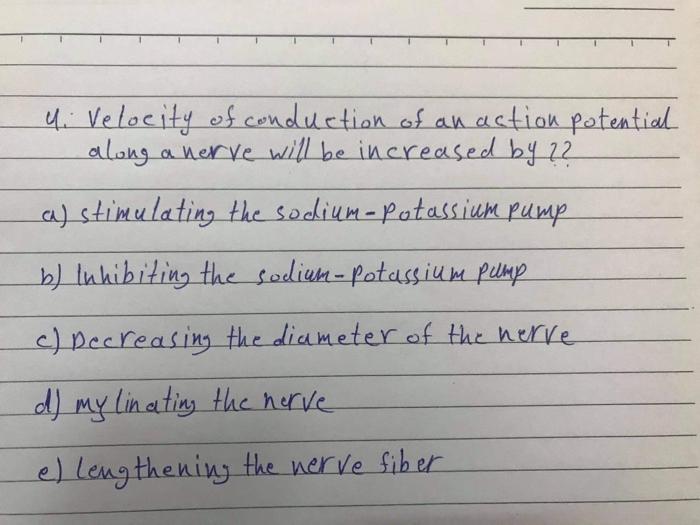 4. Velocity of conduction of an action potential
along a nerve will be increased by ??
a) stimulating the sodium-potassium pump
b) Inhibiting the sodium-potassium pump
c) Decreasing the diameter of the nerve
d) mylinating the nerve
e) lengthening the nerve fiber